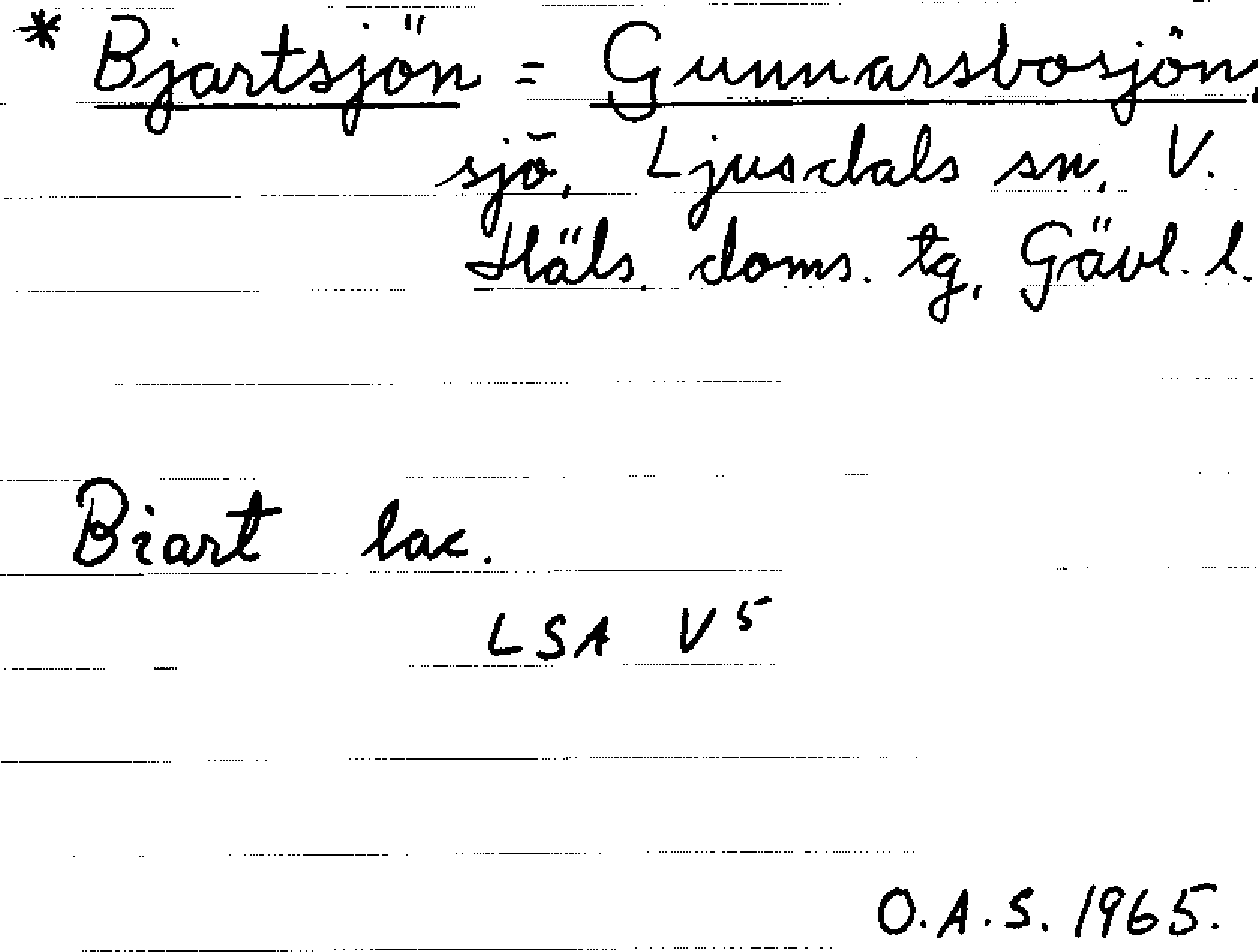 * Bjartsjön = Gunnarsbosjön,
sjö, Ljusdals sn, V.
Häls. doms. tg, Gävl. l.
Biart lac.
LSA V5
O.A.S. 1965.